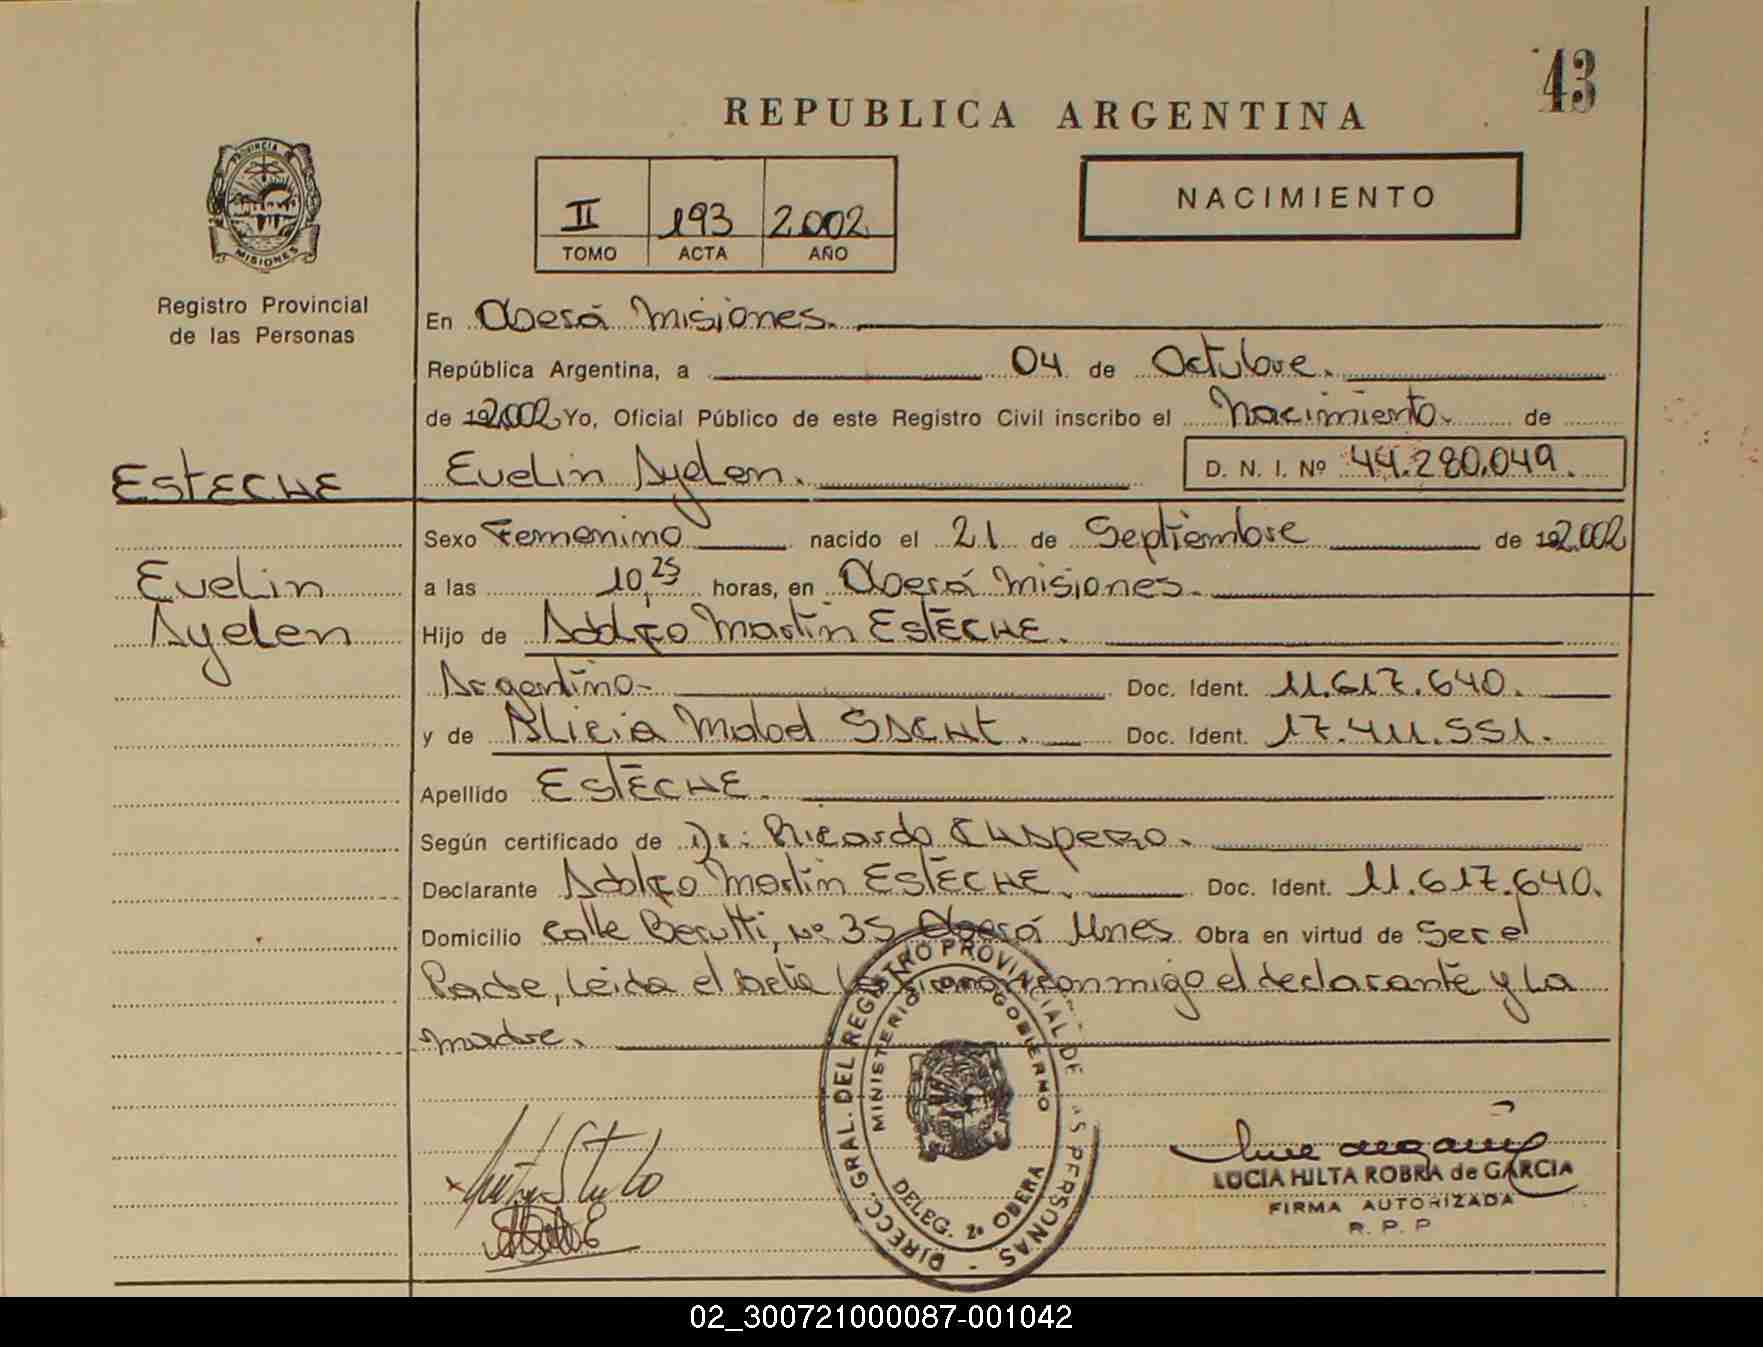 43
REPUBLICA ARGENTINA
PROVINCIA
MISIONES
II 193 2.002
TOMO ACTA AÑO
NACIMIENTO
Registro Provincial
de las Personas
En Oberá Misiones.
República Argentina, a 04 de Octubre.
de 192.002 Yo, Oficial Público de este Registro Civil inscribo el Nacimiento. de
ESTECHE Evelin Ayelen. D. N. I. Nº 44.280.049.
Sexo Femenino nacido el 21 de Septiembre de 192.002
Evelin
Ayelen
a las 10,25 horas, en Oberá Misiones.
Hijo de Adolfo Martin ESTECHE.
Argentino- Doc. Ident. 11.617.640.
y de Alicia Mabel Doc. Ident. 17.411.551.
Apellido ESTECHE.
Según certificado de Dr: Ricardo
Declarante Adolfo Martin ESTECHE. Doc. Ident. 11.617.640.
Domicilio calle Berutti, Nº 35 Oberá Mnes Obra en virtud de Ser el
Padre, Leida el acta la firman conmigo el declarante y La
madre.
DIRECC. GRAL. DEL REGISTRO PROVINCIAL DE LAS PERSONAS
MINISTERIO DE GOBIERNO
DELEG. 2ª OBERA
LUCIA HILTA ROBRA de GARCIA
FIRMA AUTORIZADA
R. P. P
02_300721000087-001042